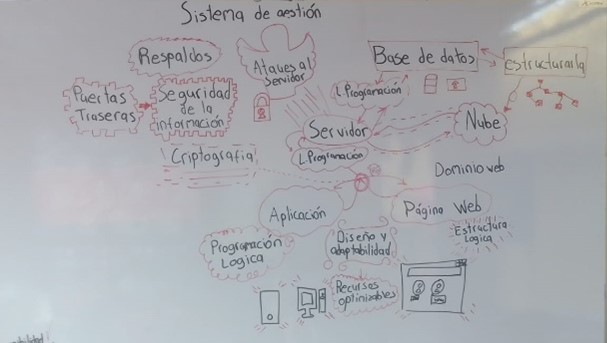 Sistema de gestión
Respaldos
Ataques al
Servidor
Base de datos
Estructurarla
Puertas
Traseras
Seguridad
de la
información
L Programación
Servidor
Nube
L.Programación
Criptografia
Dominio web
Aplicación
Página Web
Programación
Logica
Diseño y
adaptabilidad
Estructura
Logica
Recursos
optimizables